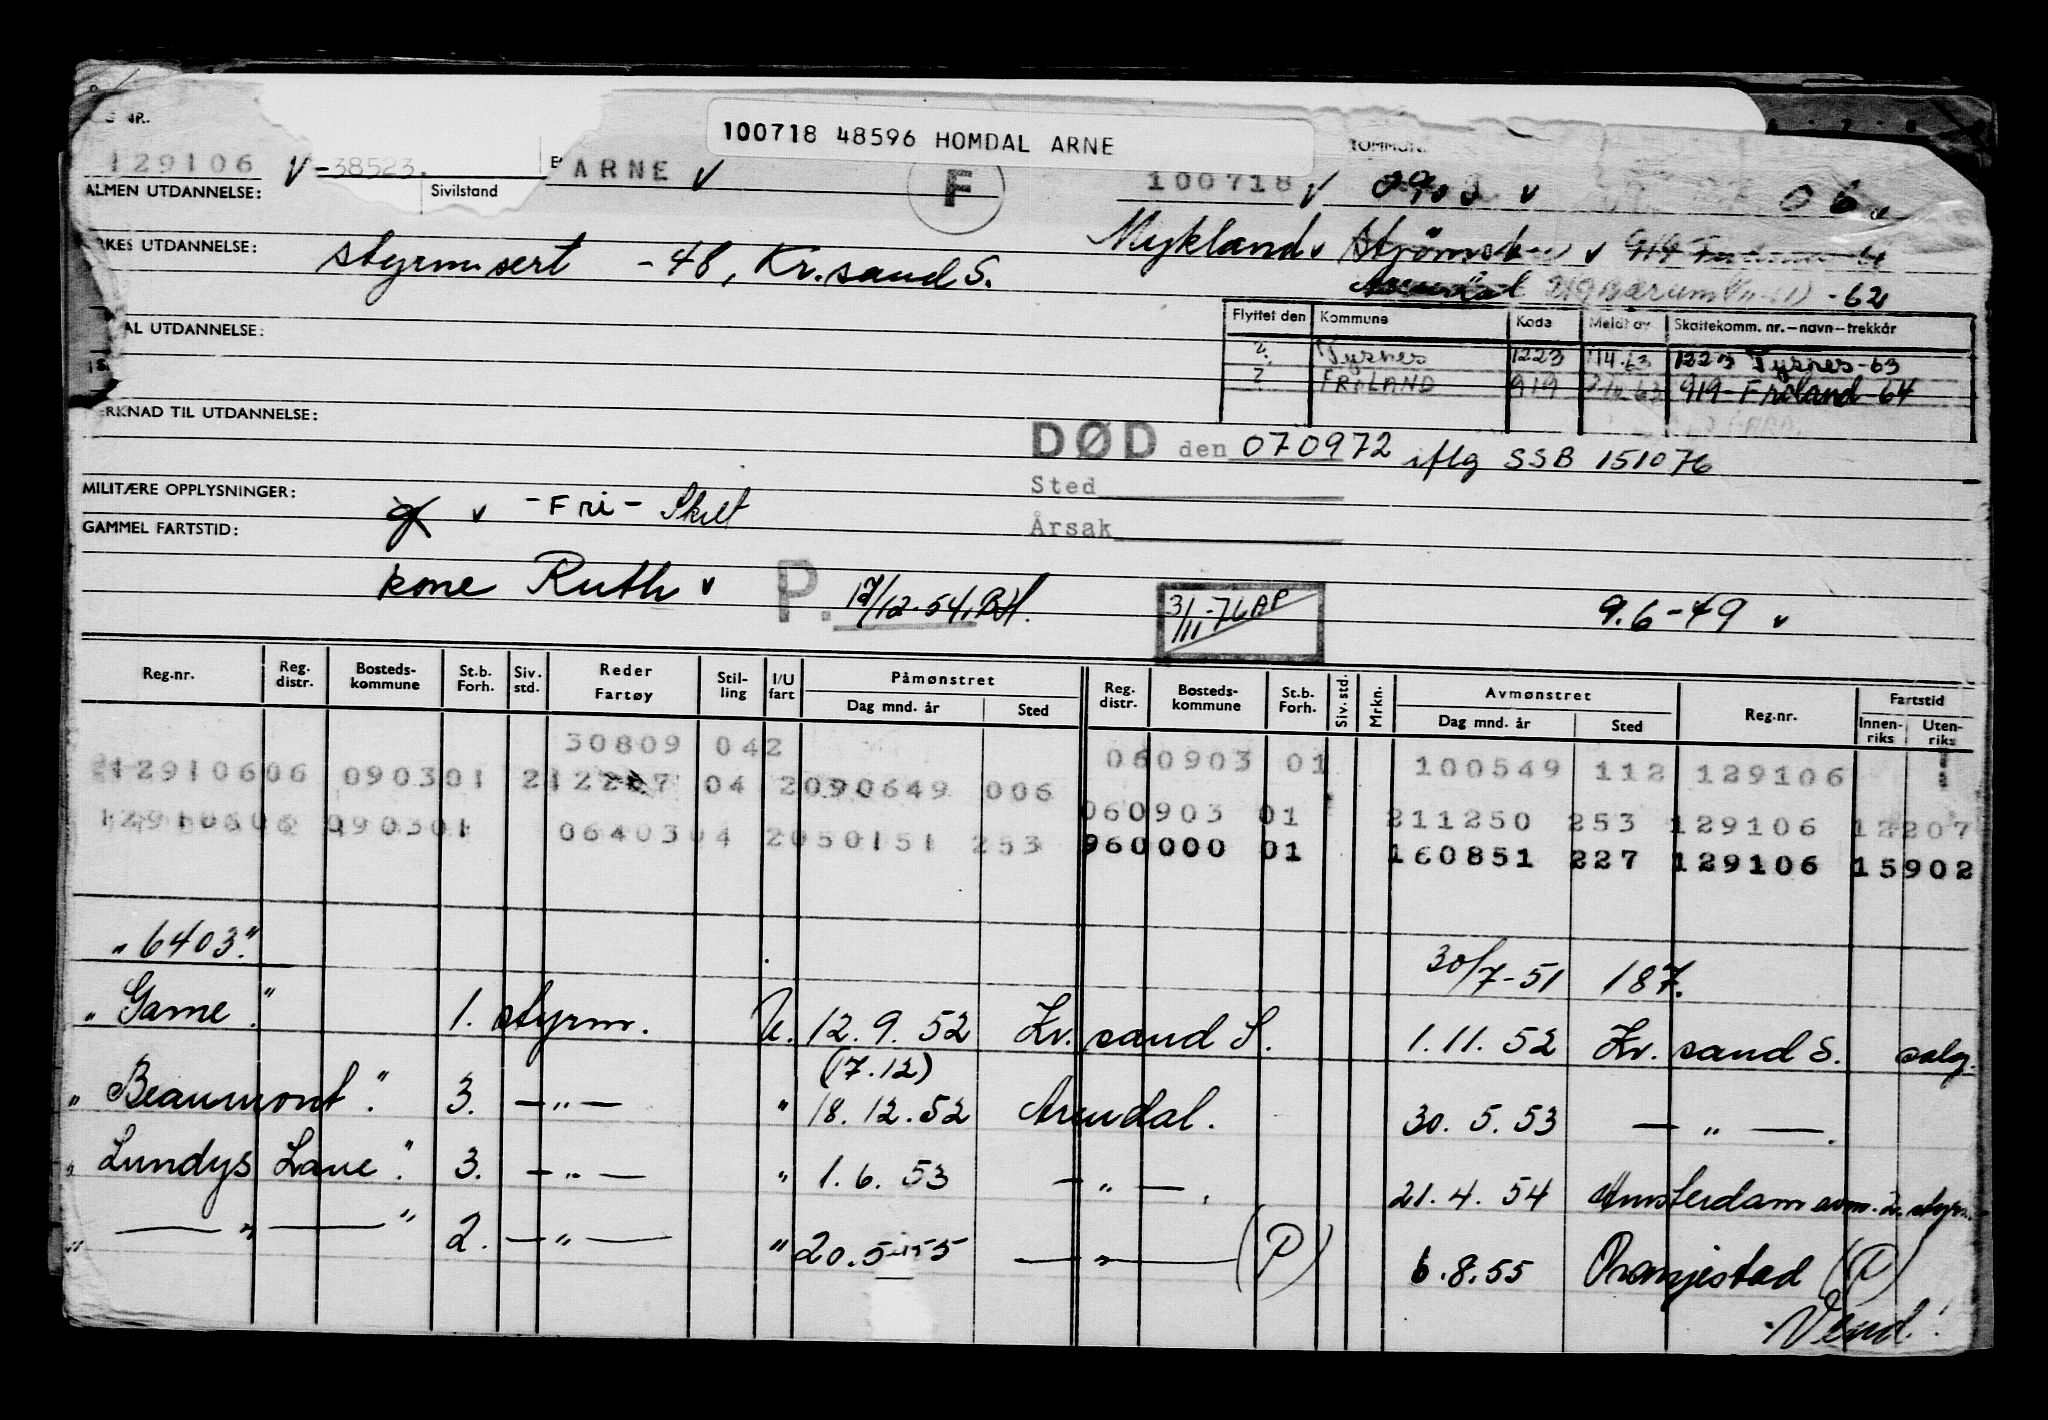 100718 48596 HOMDAL ARNE
129106 V-38523. ARNE v F 100718 v v 06
ALMEN UTDANNELSE: Sivilstand
Mykland v v
RKES UTDANNELSE: styrm.sert -48, Kr.sand S.
Arendal -62
AL UTDANNELSE:
Flyttet den Kommune Kode Meldt av Skattekomm. nr.—navn—trekkår
Tysnes 1223 1223 Tysnes-63
FROLAND 919 919-Froland-64
ERKNAD TIL UTDANNELSE:
DØD den 070972 iflg SSB 151076
Sted
MILITÆRE OPPLYSNINGER: v -Fri-
Årsak
GAMMEL FARTSTID:
kone Ruth v P. 17/12-54, BH. 3/11-76 AP 9.6-49 v
Reg.nr. Reg. distr. Bosteds-kommune St.b. Forh. Siv. std. Reder Fartøy Stil-ling I/U fart Påmønstret Dag mnd. år Sted Reg. distr. Bosteds-kommune St.b. Forh. Siv. std. Mrkn. Avmønstret Dag mnd. år Sted Reg.nr. Fartstid Innen-riks Uten-riks
30809 042 060903 01 100549 112 129106
12910606 090301 04 2090649 006 060903 01 211250 253 129106 12207
12910606 090301 0640304 2050151 253 960000 01 160851 227 129106 15902
"6403" 30/7-51 187.
"Game". 1. styrm. U. 12.9.52 Kr. sand S. 1.11.52 Kr. sand S. salg.
(17.12)
"Beaumont". 3. —"— " 18.12.52 Arendal. 30.5.53 —"—.
"Lundys Lane". 3. —"— " 1.6.53 —"—. 21.4.54 Amsterdam avm. 2. styrm.
"—"—" 2. —"— " 20.5.55 —"— (P) 6.8.55 Oranjestad (P)
Vend!